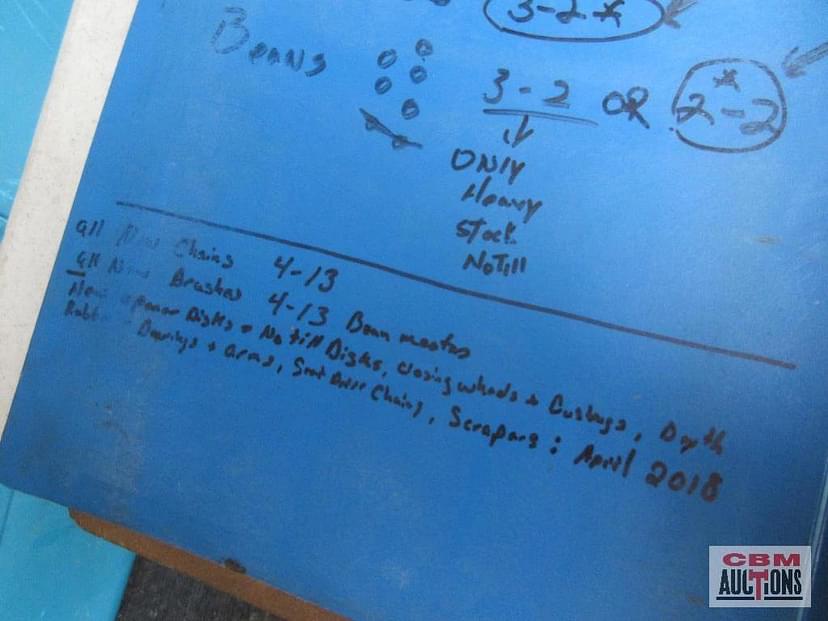 3-2 *
Beans
3-2 OR 2-2 *
ONLY
Heavy
Stock
NoTill
All New Chains 4-13
All New Brushes 4-13 Bean meters
New opener Disks + No till Disks, closing wheels + Bushings, Depth
Bearings + Arms, Seed Drive Chains, Scrapers: April 2018
CBM
AUCTIONS